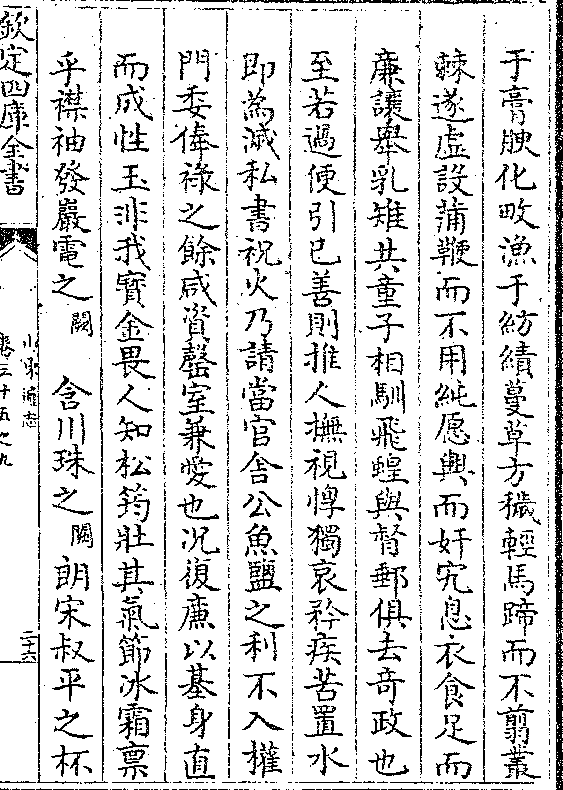 于膏腴化畋漁于紡績蔓草方穢輕馬蹄而不翦叢
棘遂虛設蒲鞭而不用純愿興而奸宄息衣食足而
廉讓舉乳雉共童子相馴飛蝗與督郵俱去奇政也
至若過使引已善則推人撫視惸獨哀矜疾苦置水
即為滅私書祝火乃請當官舍公魚鹽之利不入權
門委俸祿之餘咸資罄室兼愛也况復廉以基身直
而成性玉非我寳金畏人知松筠壯其氣節冰霜禀
乎襟袖發巖電之闕 含川珠之闕 朗宋叔平之杯
欽定四庫全書
山東通志
卷三十五之九
二十六